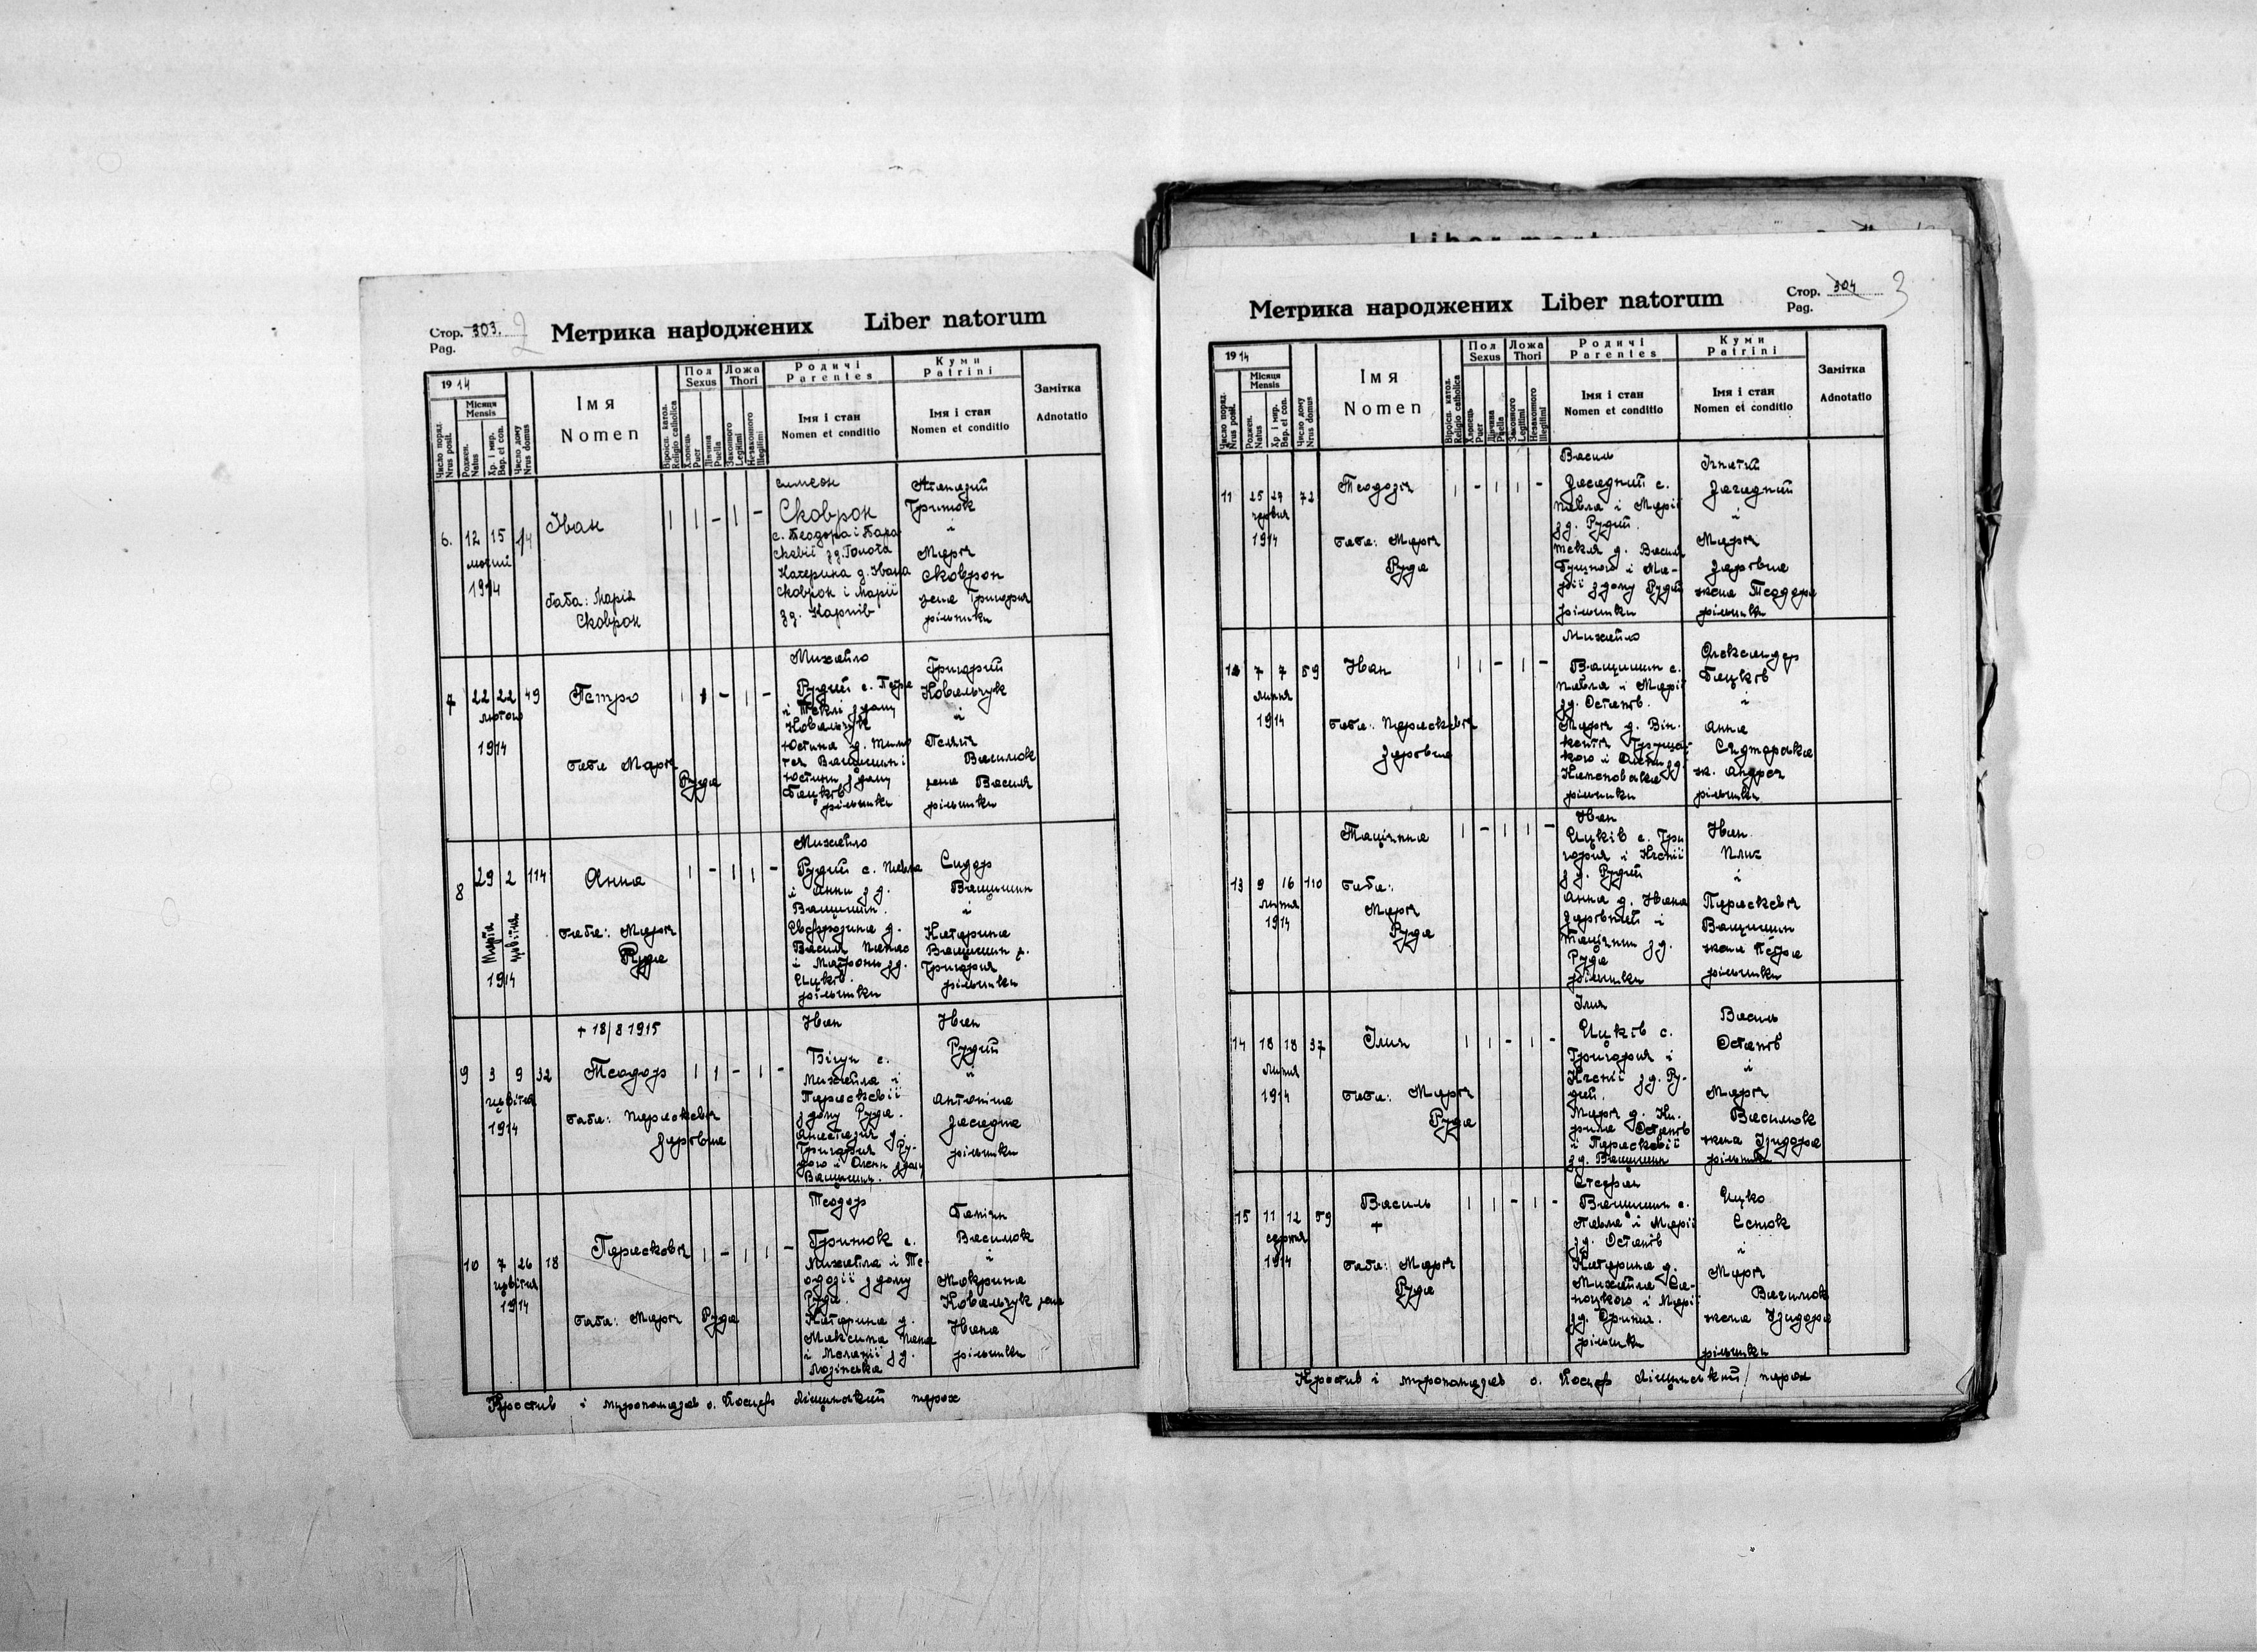 Стор. 303. 2
Pag.
Метрика народжених Liber natorum
19 14
Місяця
Mensis
Число поряд.
Nrus posit.
Рожен.
Natus
Хр. і мир.
Bap. et con.
Число дому
Nrus domus
Імя
Nomen
Віроісп. катол.
Religio catholica
Пол
Sexus
Хлопець
Puer
Дівчина
Puella
Ложа
Thori
Законного
Legitimi
Незаконного
Illegitimi
Родичі
Parentes
Імя і стан
Nomen et conditio
Куми
Patrini
Імя і стан
Nomen et conditio
Замітка
Adnotatio
6. 12 15 14
лютий
1914
Іван
баба: Марія
Сковрон
1 1 - 1 -
Симеон
Сковрон
с. Теодора і Пара
скевії з д. Голота
Катерина д. Івана
Сковрон і Марії
з д. Карпів
Атаназий
Гринюк
і
Марія
Сковрон
жена Григорія
рільники
7 22 22 49
лютого
1914
Петро
баба Марія
Руда
1 1 - 1 -
Михайло
Рудий с. Петра
і Теклі з дому
Ковальчук
Юстина д. Тимо
тея Ващишин і
Юстини з дому
Бецків
рільники
Григорий
Ковальчук
і
Пелагія
Василюк
жена Василя
рільники
8 29 2 114
Марта
цвітня
1914
Анна
баба: Марія
Руда
1 - 1 1 -
Михайло
Рудий с. Павла
і Анни з д.
Ващишин.
Евфрозина д.
Василя
і Матрони з д.
Яцків.
рільники
Сидор
Ващишин
і
Катарина
Ващишин ж.
Григорія
рільники
+ 18/8 1915
9 3 9 32
цвітня
1914
Теодор
баба: Параскевія
Зарівна
1 1 - 1 -
Іван
Бігун с.
Михайла і
Параскевії
з дому Руда.
Анастазия д.
Григорія Ру-
дого і Олени з дому
Ващишин.
Іван
Рудий
і
Антоніна
Засадна
рільники
10 7 26 18
цвітня
1914
Параскевія
баба: Марія Руда
1 - 1 1 -
Теодор
Гринюк с.
Михайла і Те-
одозії з дому
Руда.
Катарина д.
Максима
і Меланії з д.
Лозінська
Василюк
і
Мокрина
Ковальчук жена
Івана
рільники
Хрестив і миропомазав о. Йосиф Ліщинський парох
Метрика народжених Liber natorum
Стор. 304 3
Pag.
19 14
Місяця
Mensis
Число поряд.
Nrus posit.
Рожен.
Natus
Хр. і мир.
Bap. et con.
Число дому
Nrus domus
Імя
Nomen
Віроісп. катол.
Religio catholica
Пол
Sexus
Хлопець
Puer
Дівчина
Puella
Ложа
Thori
Законного
Legitimi
Незаконного
Illegitimi
Родичі
Parentes
Імя і стан
Nomen et conditio
Куми
Patrini
Імя і стан
Nomen et conditio
Замітка
Adnotatio
11 25 29 72
червня
1914
Теодозія
баба: Марія
Руда
1 - 1 1 -
Василь
Засадний с.
Павла і Марії
з д. Рудий.
Текля д. Василя
і Ма-
рії з дому Рудий
рільники
Ігнатий
Засадний
і
Марія
Зарівна
жена Теодора
рільники
12 7 7 59
липня
1914
Іван
баба: Параскевія
Зарівна
1 1 - 1 -
Михайло
Ващишин с.
Павла і Марії
з д. Остапів.
Марія д. Він-
кентія
і Олени з д.
рільники
Олександер
Бецків
і
Анна
ж. Андрея
рільники
13 9 16 110
липня
1914
Таціянна
баба:
Марія
Руда
1 - 1 1 -
Іван
Яцків с. Гри
горія і Ксенії
з д. Рудий
Анна д. Івана
Зарівний і
Таціянни з д.
Руда
рільники
Іван
Плис
і
Параскевія
Ващишин
жена Петра
рільники
14 18 18 37
липня
1914
Ілия
баба: Марія
Руда
1 1 - 1 -
Ілия
Яцків с.
Григорія і
Ксенії з д. Ру-
дий.
Марія д. Ки-
рила Остапів
і Параскевії
з д. Ващишин
Василь
Остапів
і
Марія
Василюк
жена Ізидора
рільники
15 11 12 59
серпня
1914
Василь
+
баба: Марія
Руда
1 1 - 1 -
Стефан
Ващишин с.
Павла і Марії
з д. Остапів
Катарина д.
Михайла Са-
ноцкого і Марії
з д.
рільники
Яцко
Есюк
і
Марія
Василюк
жена Ізидора
рільники
Хрестив і миропомазав о. Йосиф Ліщинський парох